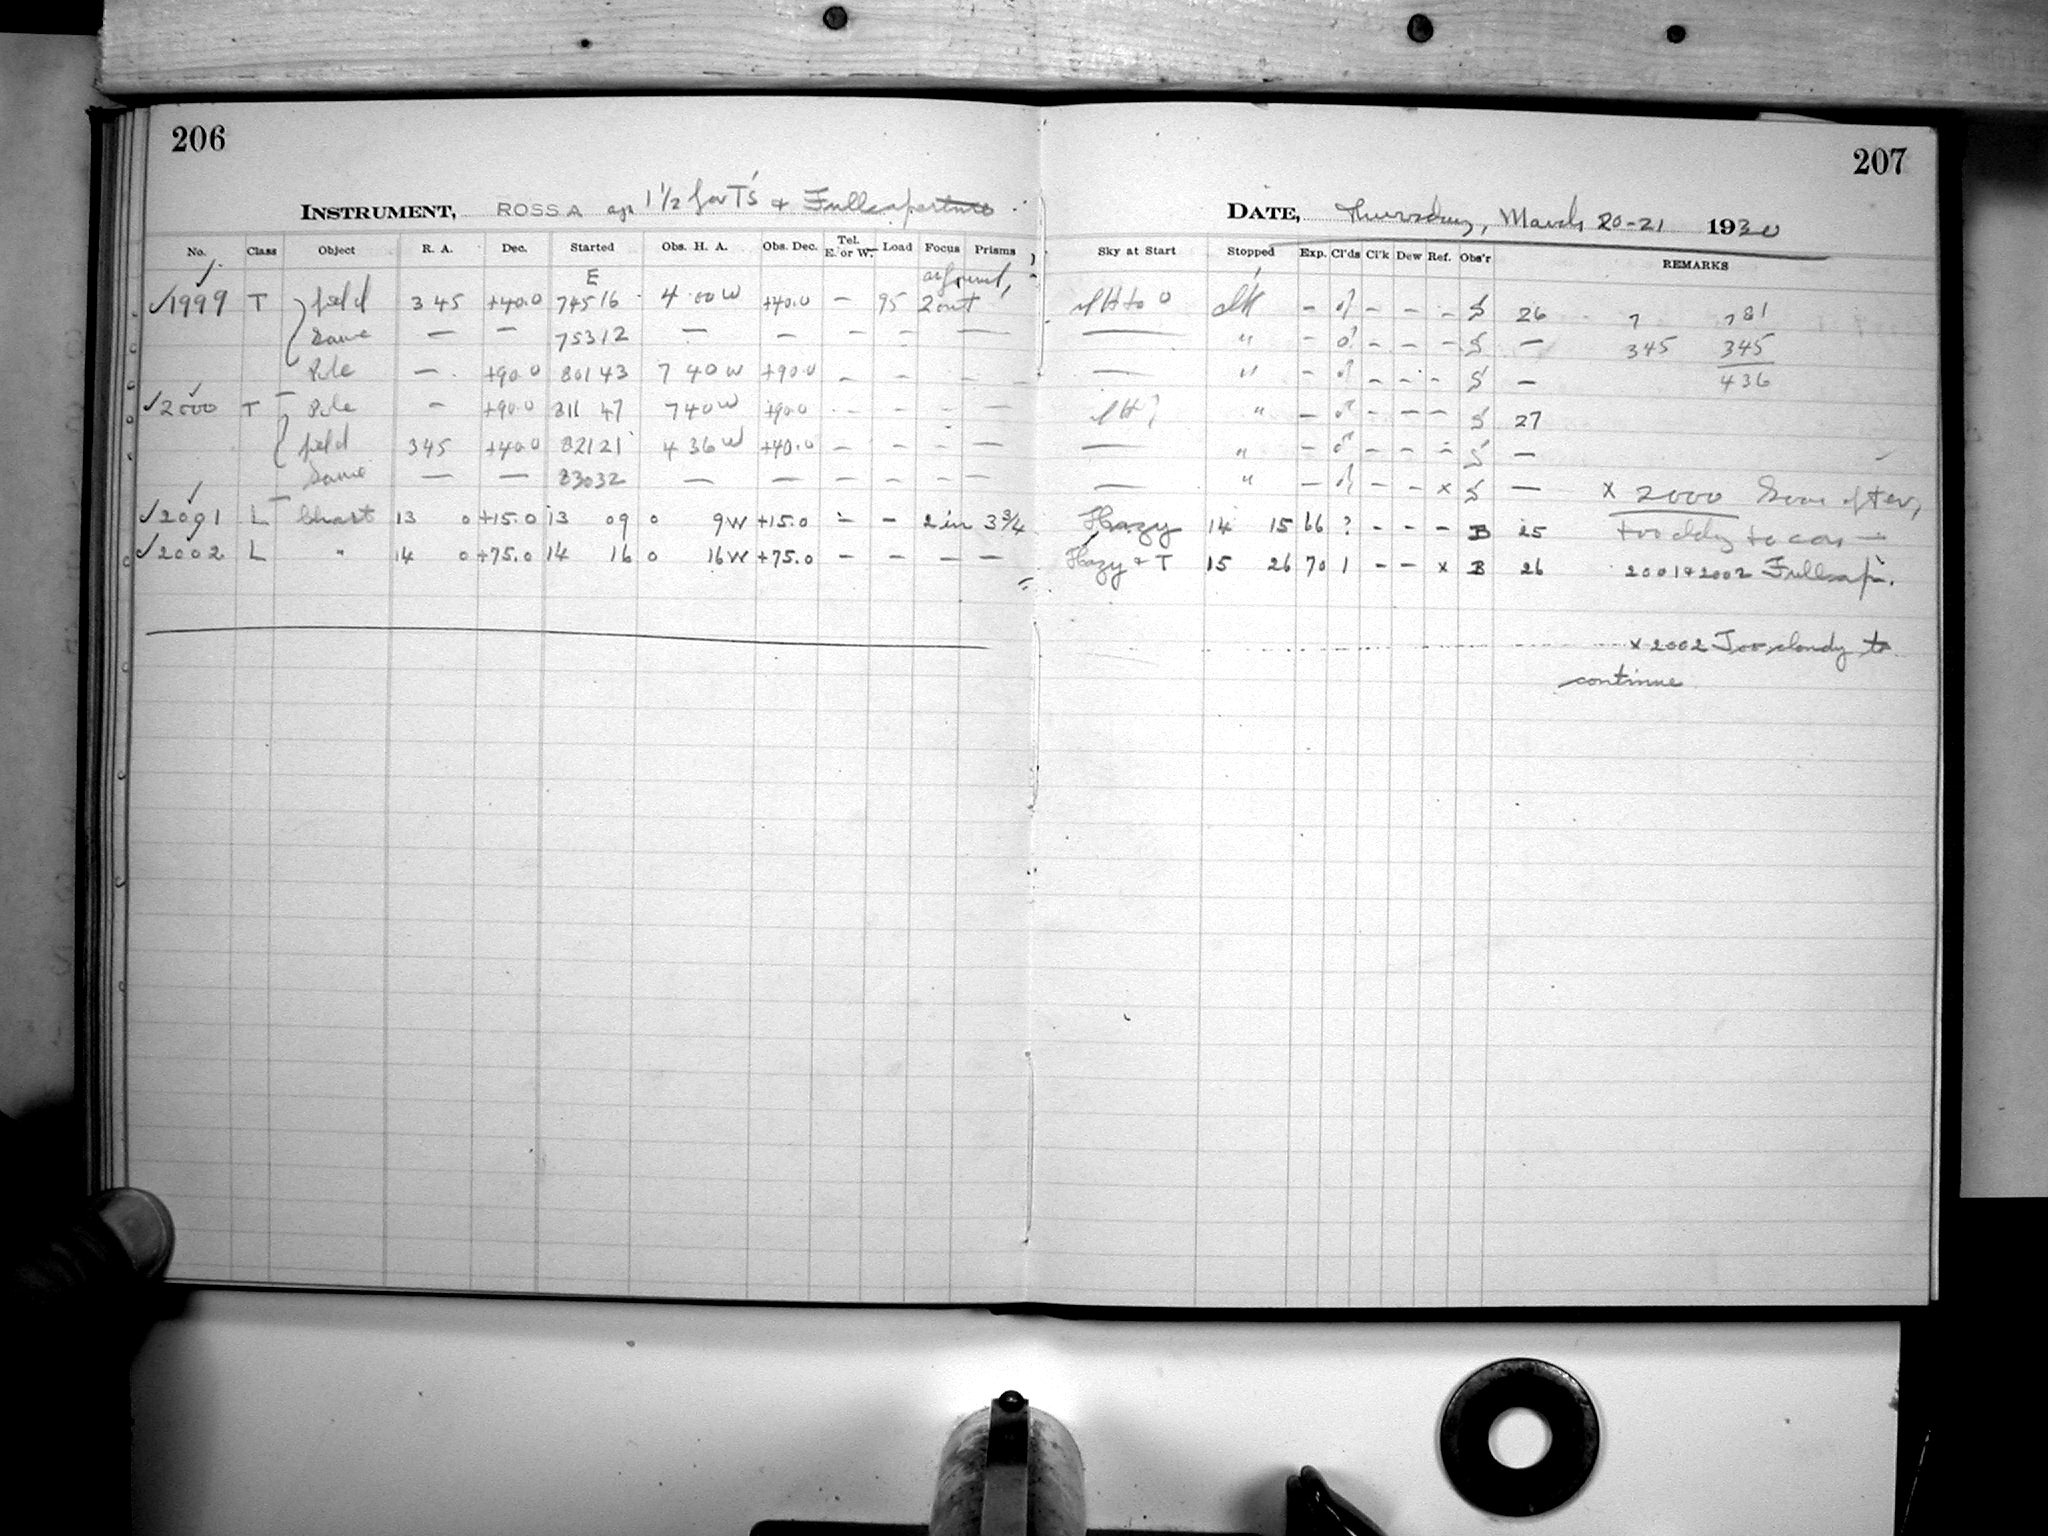 206
INSTRUMENT, ROSS A ap 1 1/2 for T's & Fullaperture
No. Class Object R. A. Dec. Started Obs. H. A. Obs. Dec. Tel. E. or W. Load Focus Prisms
E as found,
✓1999 T field 3 45 +40.0 74516 4 00 W +40.0 — 95 2 out
Same — — 75312 — — — — — —
Pole — +90.0 80143 7 40 W +90.0 — — — —
✓2000 T Pole — +90.0 811 47 7 40 W +90.0 — — — —
field 3 45 +40.0 82121 4 36 W +40.0 — — — —
Same — — 83032 — — — — — —
✓2001 L Chart 13 0 +15.0 13 09 0 9W +15.0 — — 2 in 3 3/4
✓2002 L " 14 0 +75.0 14 16 0 16W +75.0 — — — —
207
DATE, Thursday, March 20-21 1930
Sky at Start Stopped Exp. Cl'ds Cl'k Dew Ref. Obs'r REMARKS
— — — — S 26 7 781
— " — — — — S — 345 345
— " — — — — S — 436
" — — — — S 27
— " — — — — S —
— " — — — x S — x 2000 Soon after,
Hazy 14 15 66 ? — — — B 25 too cldy to con —
Hazy & T 15 26 70 1 — — x B 26 2001 & 2002 Fullap.
x 2002 Too cloudy to
continue